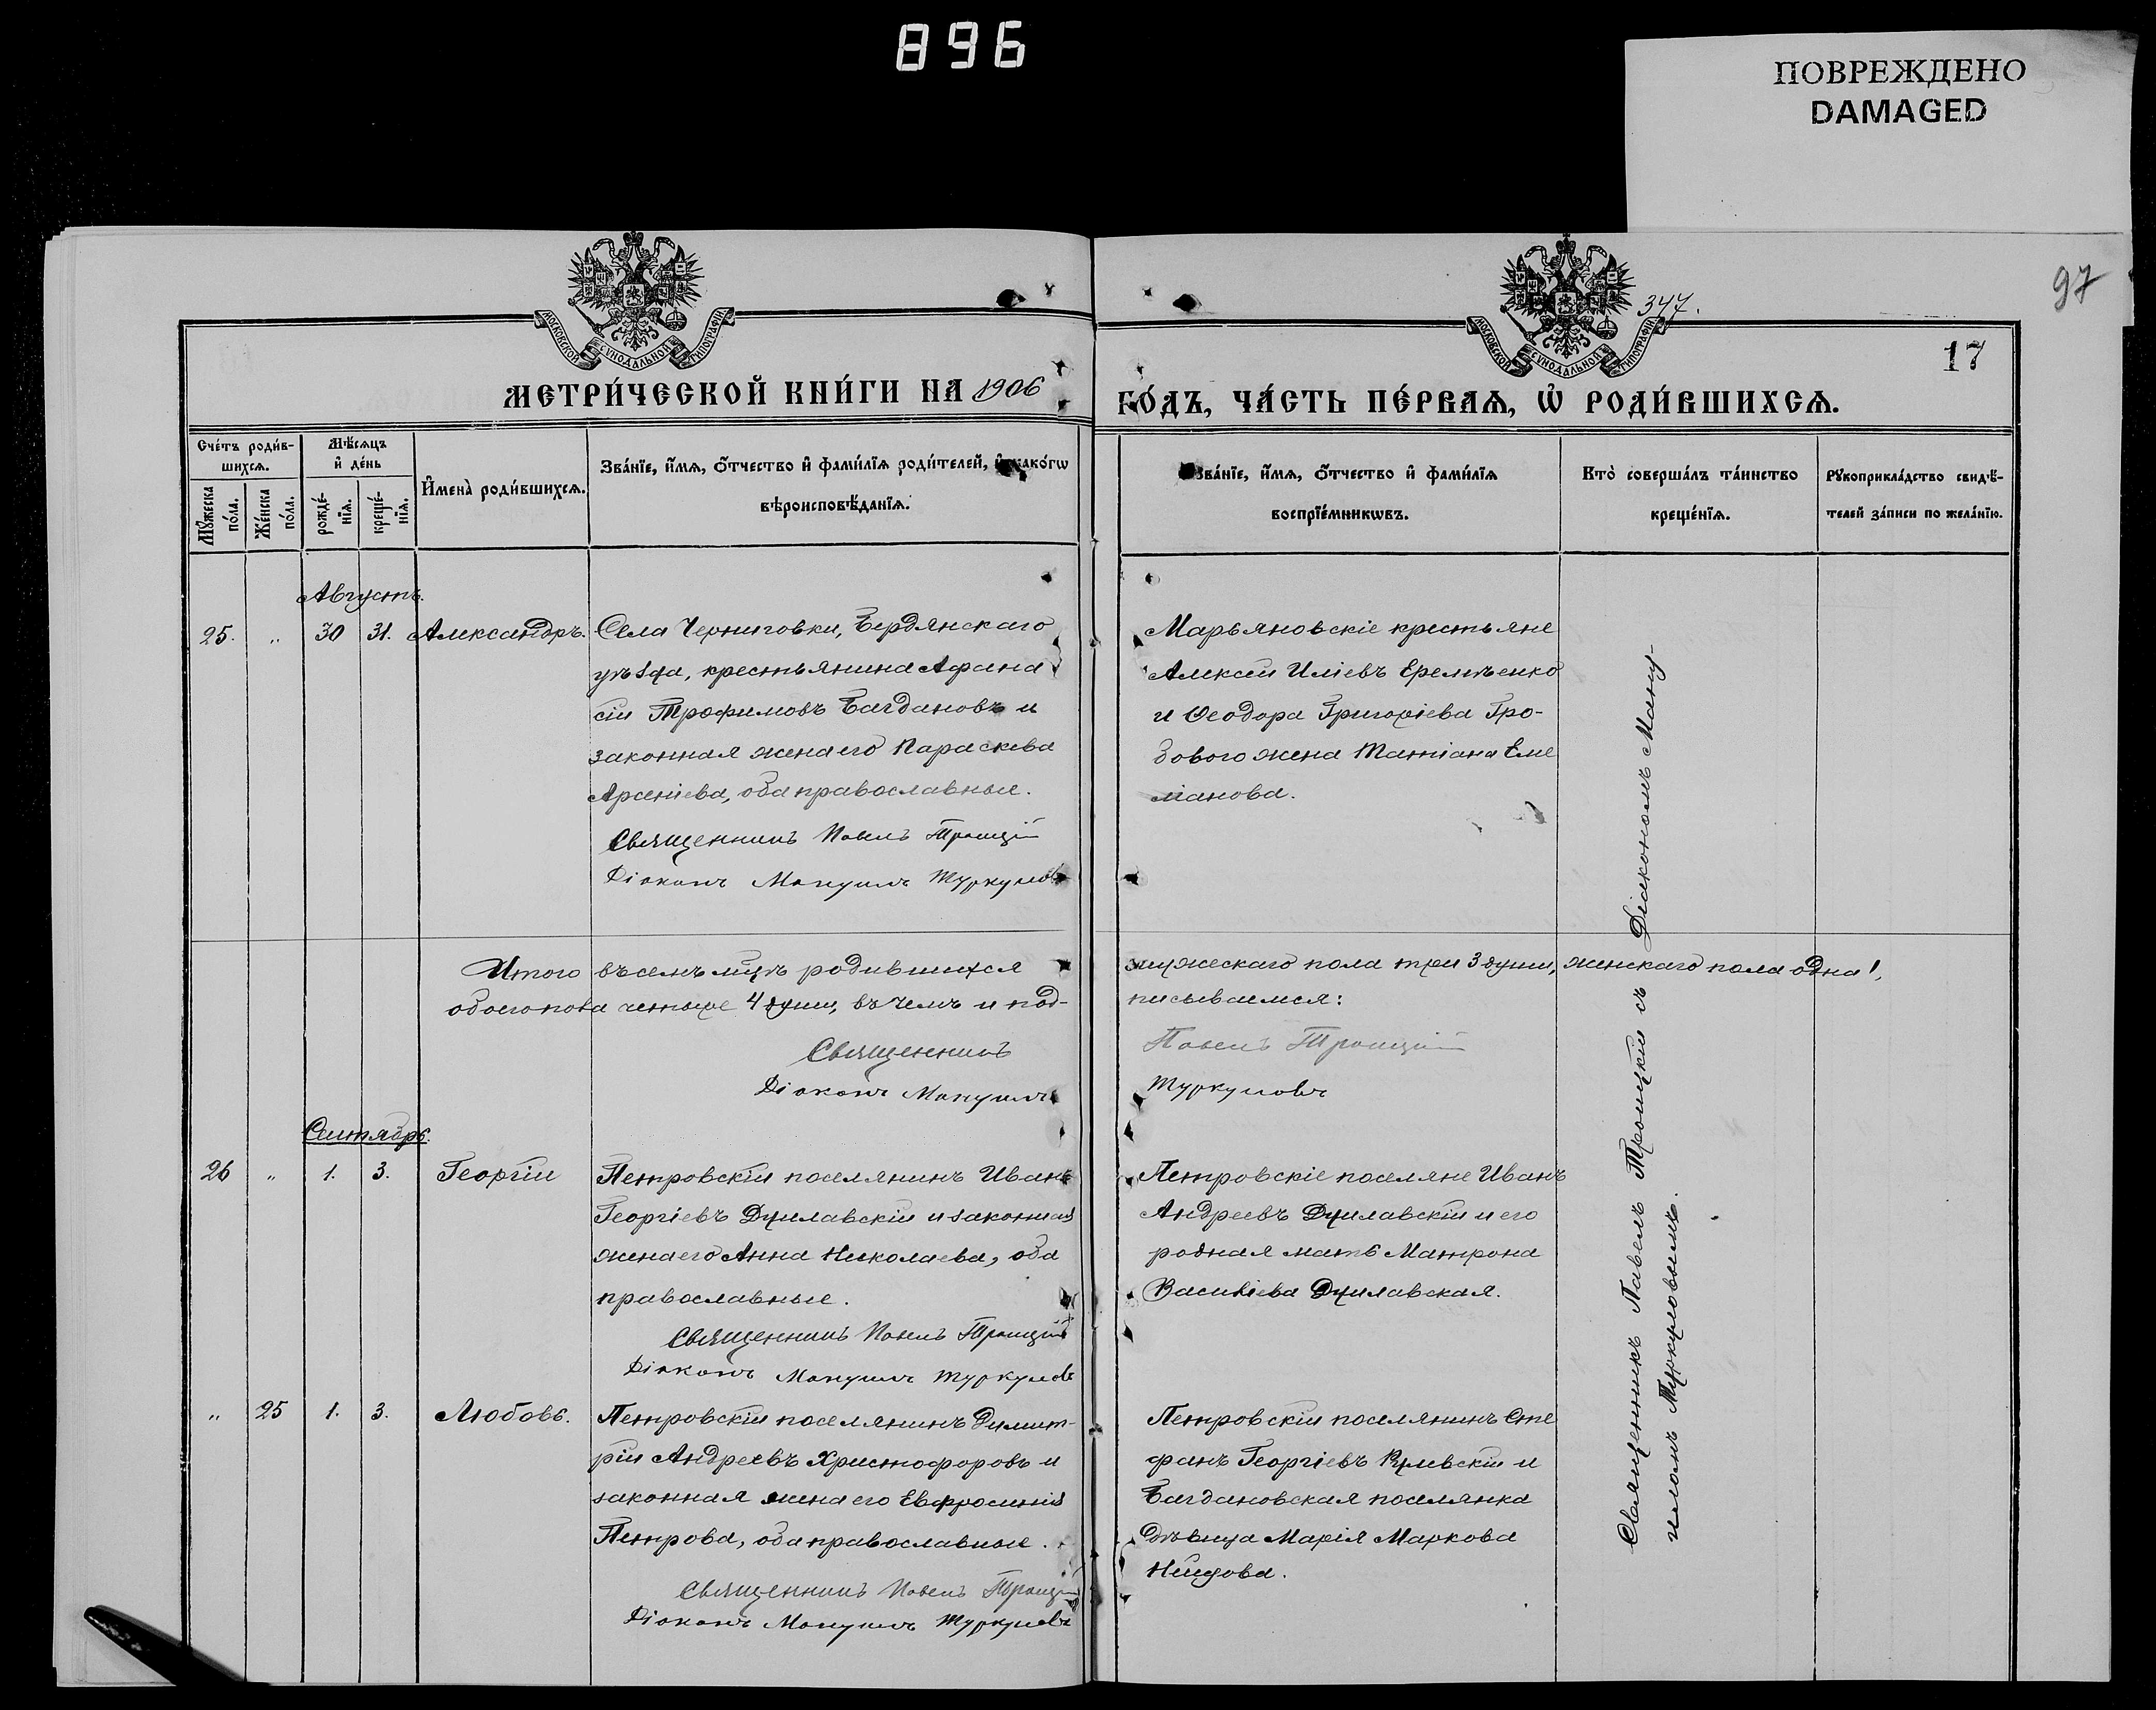 896
ПОВРЕЖДЕНО
DAMAGED
97
347.
17
МОСКОВСКОЙ СѴНОДАЛЬНОЙ ТИПОГРАФІИ
МОСКОВСКОЙ СѴНОДАЛЬНОЙ ТИПОГРАФІИ
МЕТРИ́ЧЕСКОЙ КНИ́ГИ НА 1906
ГО́ДЪ, ЧА́СТЬ ПЕ́РВАѦ, Ѡ҆ РОДИ́ВШИХСѦ.
Сче́тъ роди́в-
шихсѧ.
Мѣ́сѧцъ
и҆ де́нь
Мꙋ́жеска
по́ла.
Же́нска
по́ла.
рожде́-
нїѧ.
креще́-
нїѧ.
И҆мена̀ роди́вшихсѧ.
Зва́нїе, и҆́мѧ, ѻ҆́тчество и҆ фами́лїѧ роди́телей, и҆ како́гѡ
вѣроисповѣ́данїѧ.
Зва́нїе, и҆́мѧ, ѻ҆́тчество и҆ фами́лїѧ
воспрїе́мникѡвъ.
Кто̀ соверша́лъ та́инство
креще́нїѧ.
Рꙋкоприкла́дство свидѣ́-
телей за́писи по жела́нїю.
Августъ.
25. „ 30 31. Александръ.
Села Черниговки, Бердянскаго
уѣзда, крестьянина Афана
сій Трофимовъ Багдановъ и
законная жена его Параскева
Арсеніева, оба православные.
Священникъ Павелъ Троицкій
Діаконъ Мануилъ Туркуловъ
Марьяновскіе крестьяне
Алексій Иліевъ Еремѣенко
и Ѳеодора Григоріева Гро-
зового жена Татіана Еме
ліанова.
Итого въ семъ мцѣ родившихся
мужескаго пола три 3 души, женскаго пола одна 1,
обоего пола четыре 4 души, въ чемъ и под-
писываемся:
Священникъ
Павелъ Троицкій
Діаконъ Мануилъ
Туркуловъ
Сентябрь.
26 „ 1. 3. Георгій
Петровскій поселянинъ Иванъ
Георгіевъ Дзилавскій и законная
жена его Анна Николаева, оба
православные.
Священникъ Павелъ Троицкій
Діаконъ Мануилъ Туркуловъ
Петровскіе поселяне Иванъ
Андреевъ Дзилавскій и его
родная мать Матрона
Василіева Дзилавская.
„ 25 1. 3. Любовь.
Петровскій поселянинъ Димит-
рій Андреевъ Христофоровъ и
законная жена его Евфросинія
Петрова, оба православные.
Священникъ Павелъ Троицкій
Діаконъ Мануилъ Туркуловъ
Петровскій поселянинъ Сте
фанъ Георгіевъ и
Багдановская поселянка
дѣвица Марія Маркова
Священникъ Павелъ Троицкій съ Діакономъ Ману-
иломъ Туркуловымъ.